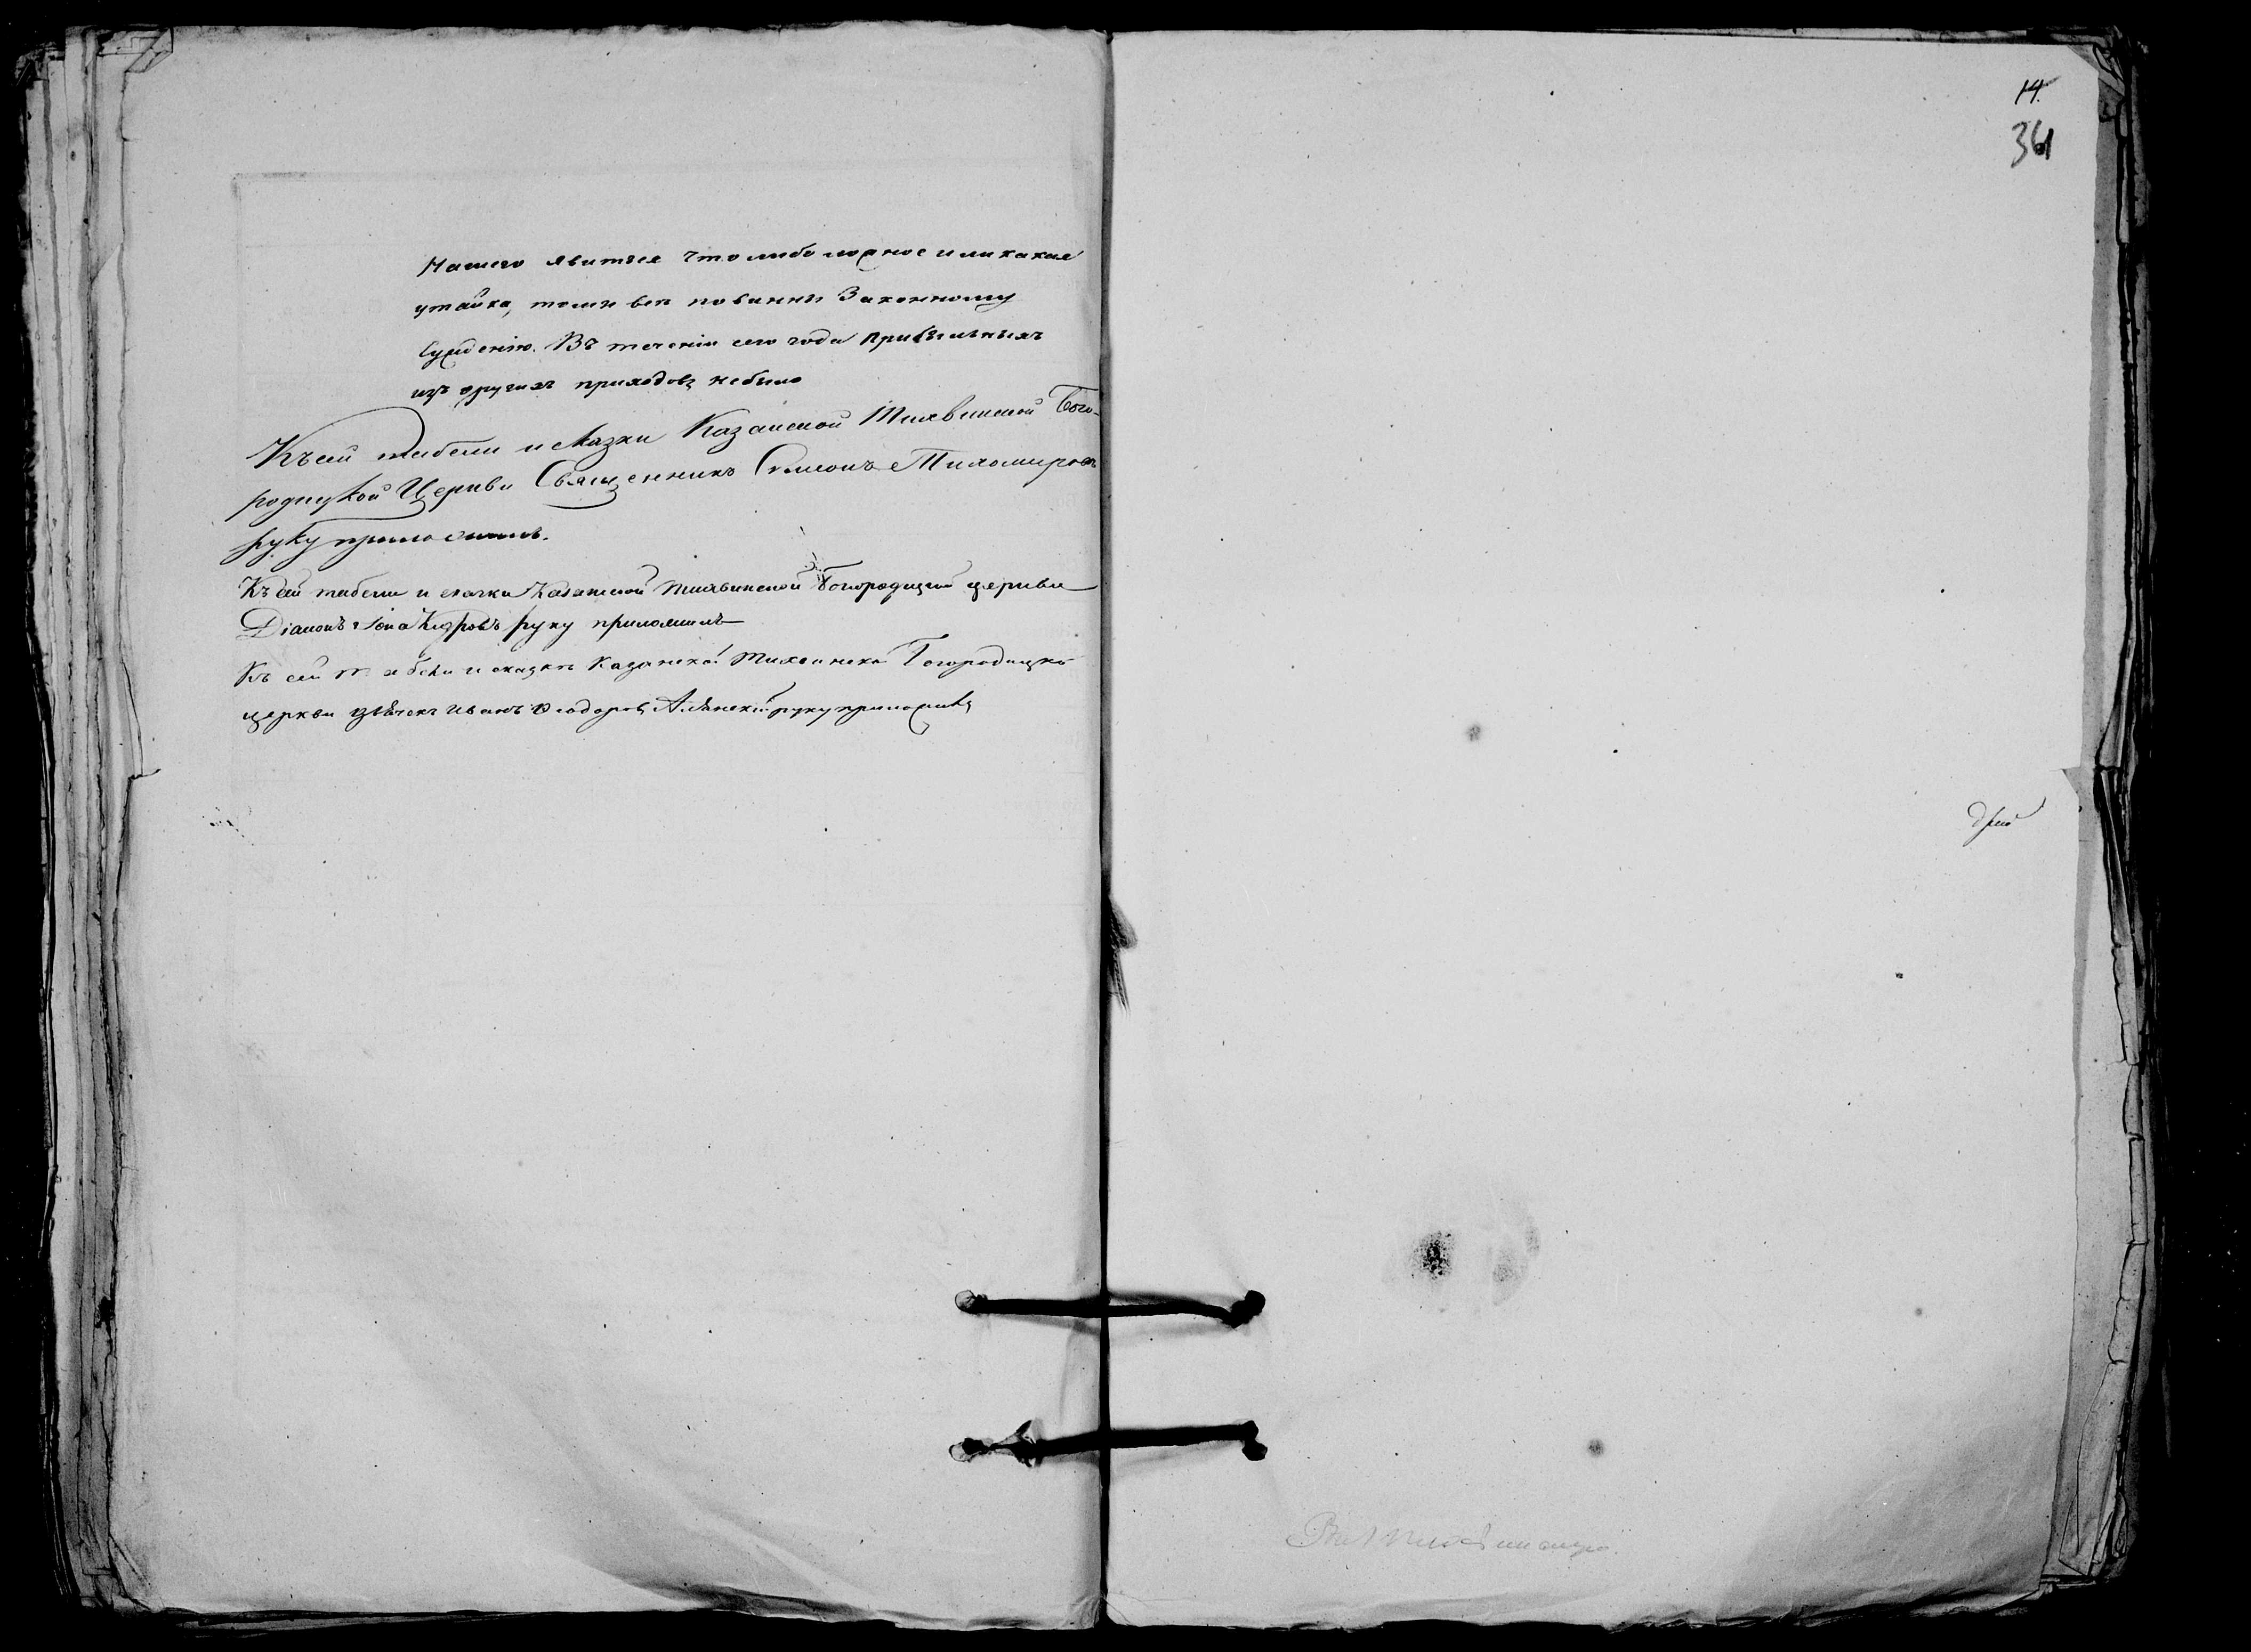 Нашего явится что либо ложное или какая
утайка, томы всѣ повинны Законному
Сужденію. Въ теченіи сего года прибыльныхъ
изъ другихъ приходовъ небыло
Къ сей табели и сказки Казанской Тихвинской Бого-
родицкой Церкви Священникъ Симеонъ Тихомировъ
руку приложилъ.
Къ сей табели и сказки Казанской Тихвинской Богородицкой церкви
Діаконъ Іона руку приложилъ
Къ сей табели и сказкѣ Казанской Тихвинской Богородицкой
церкви Иванъ Ѳеодоровъ руку приложилъ
14.
361